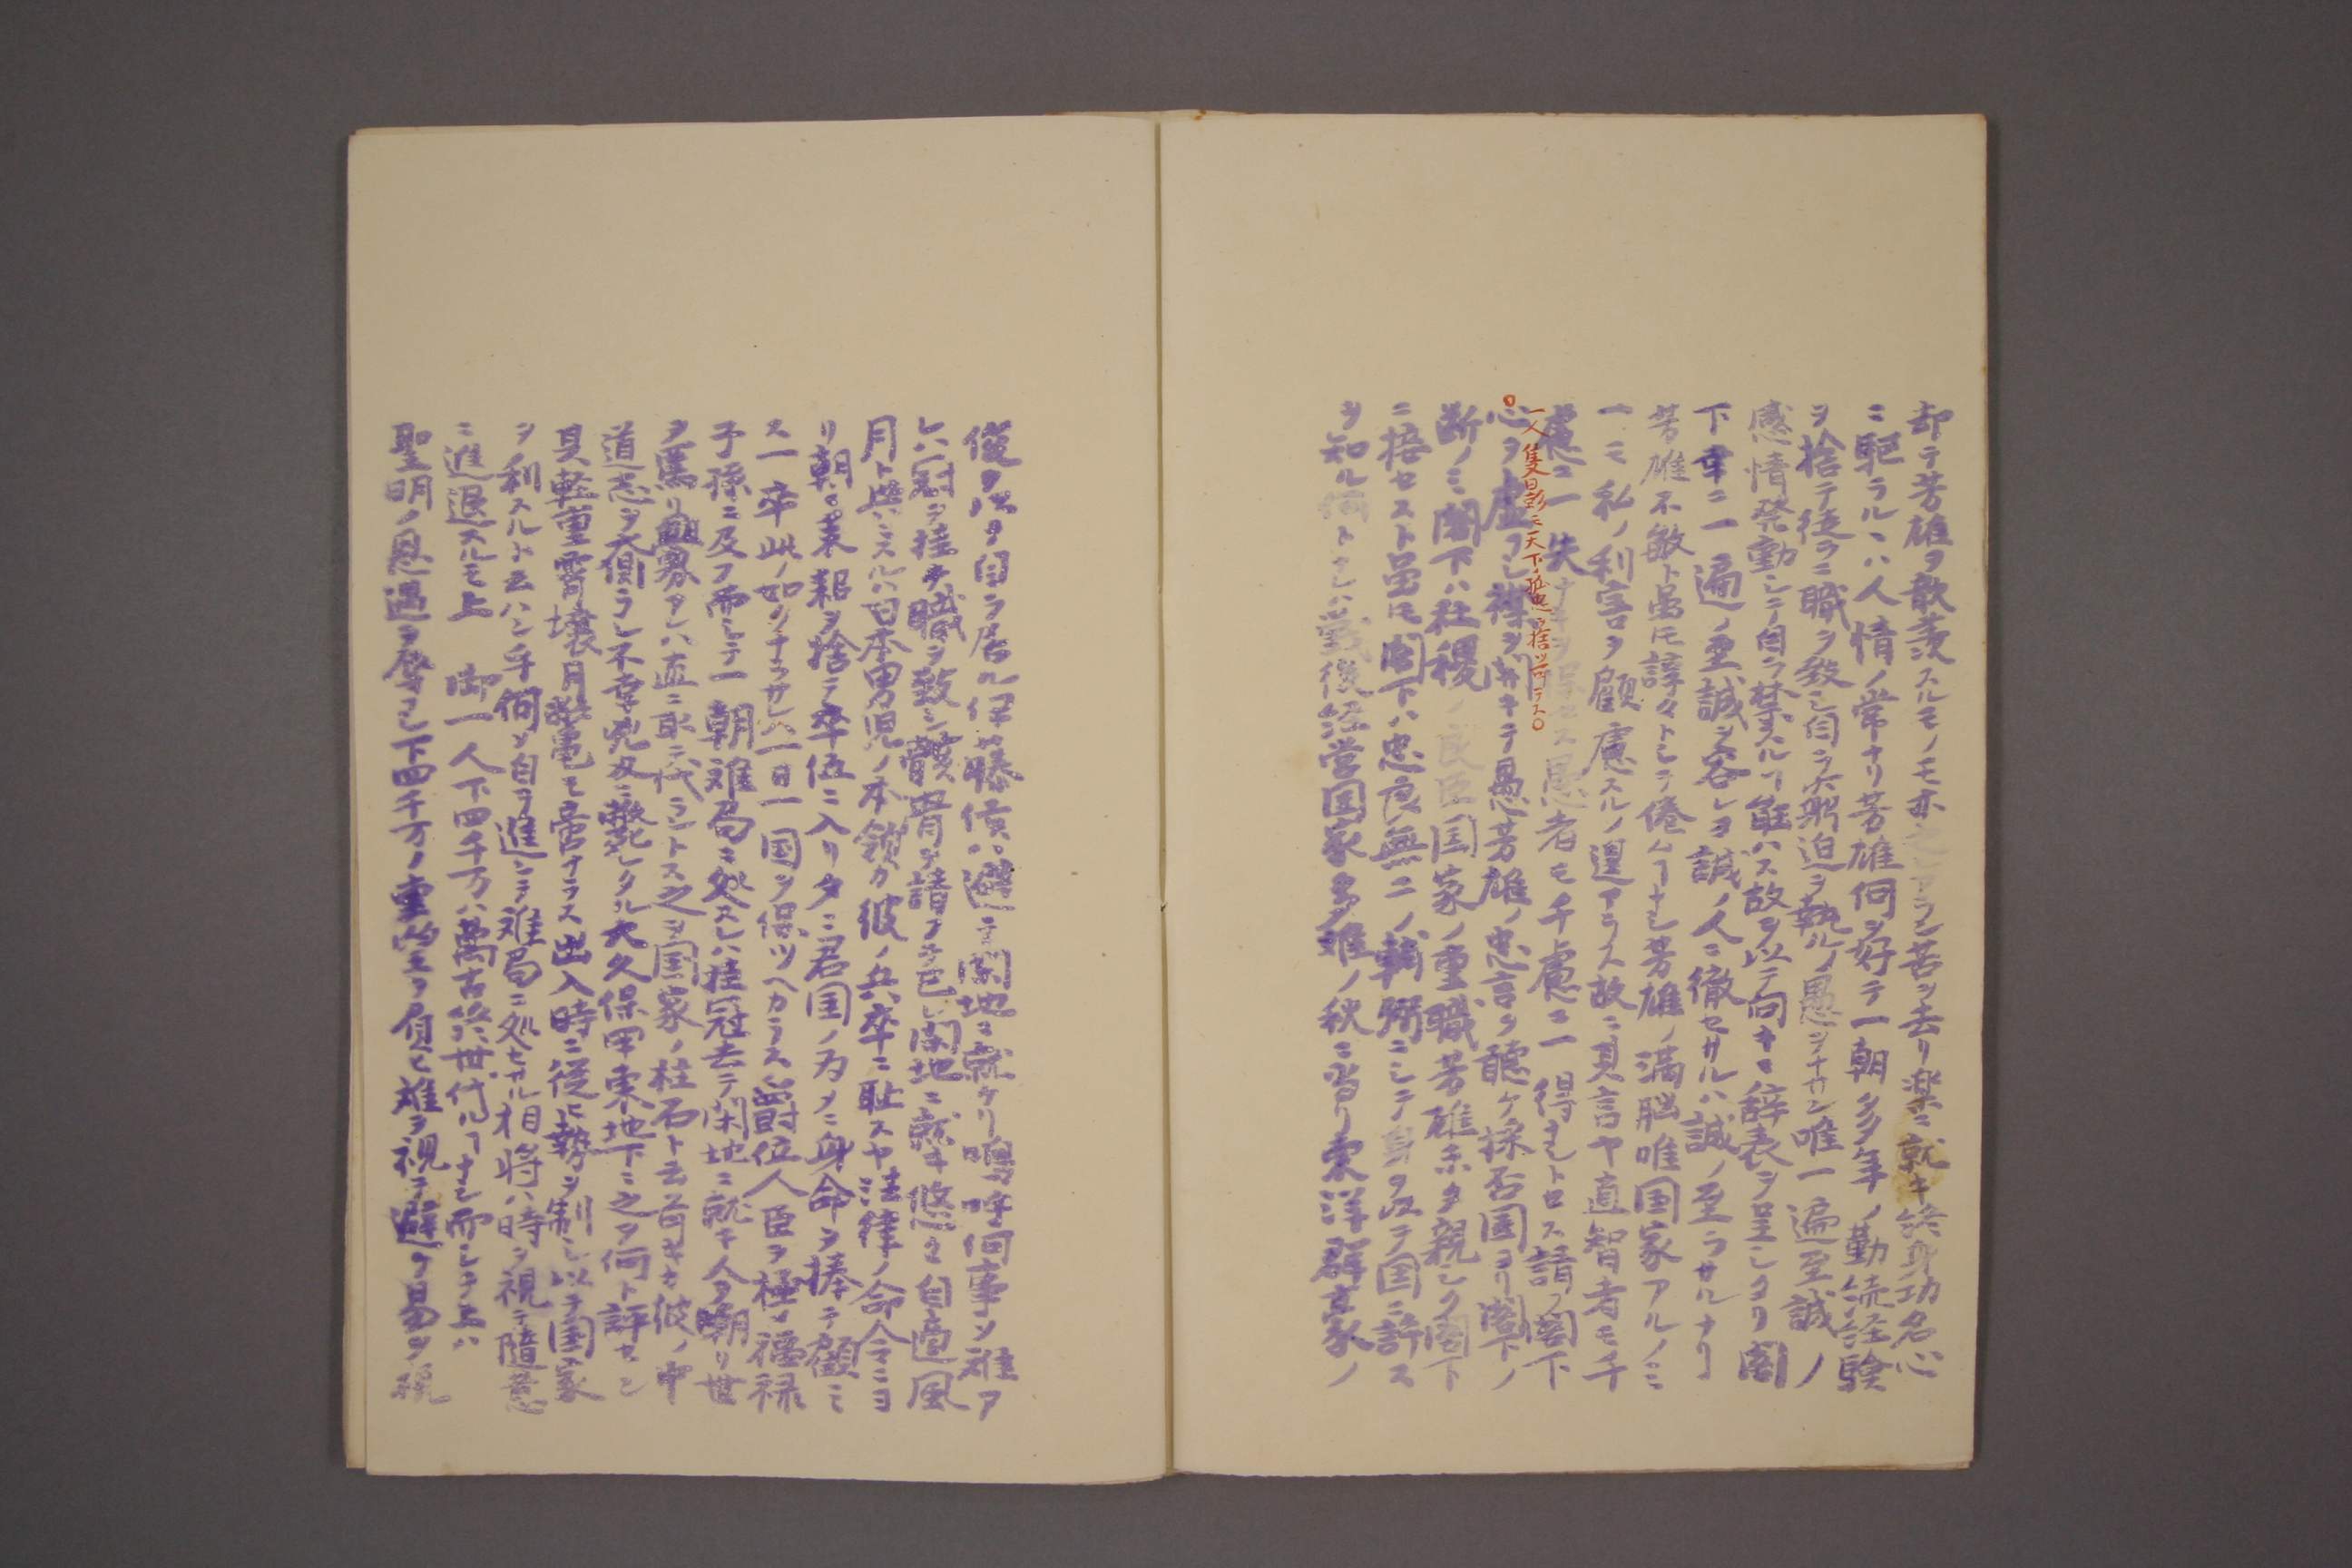 却テ芳雄ヲ歆羨スルモノモ亦之レアラン苦ヲ去リ楽ニ就キ終身功名心
ニ駆ラルヽハ人情ノ常ナリ芳雄何ヲ好テ一朝多年ノ勤続経験
ヲ捨テ徒ラニ職ヲ致シ自ラ窮迫ヲ執ルノ愚ヲナサン唯一遍至誠ノ
感情発動シテ自ラ禁スルヿ能ハス故ヲ以テ向キニ辞表ヲ呈シタリ閣
下幸ニ一遍ノ至誠ヲ容レヨ誠ノ人ニ徹セサルハ誠ノ至ラサルナリ
芳雄不敏ト雖モ諄々トシテ倦ムヿナシ芳雄ノ満脳唯国家アルノミ
一モ私ノ利害ヲ顧慮スルノ遑アラス故ニ其言ヤ直智者モ千
慮ニ一失ナキヲ得ス愚者モ千慮ニ一得ナシトセス請フ閣下
一人 天下ノ 捨ツ可ラス
心ヲ虚フシ襟ヲ開キテ愚芳雄ノ忠言ヲ聴ケ採否固ヨリ閣下ノ
断ノミ閣下ハ社稷ノ良臣国家ノ重職芳雄未タ親シク閣下
ニ接セスト雖モ閣下ハ忠良無二ノ輔弼ニシテ身ヲ以テ国ニ許ス
ヲ知ル何トナレハ戦後経営国家多難ノ秋ニ当リ東洋群豪家ノ
俊ヲ以テ自ラ居ル伊藤侯ハ避テ閑地ニ就ケリ嗚呼何事ソ難ア
レハ冠ヲ挂ケ職ヲ致シ骸骨ヲ請フテ已レ閑地ニ就キ悠々自適風
月ト與ニスルハ日本男児ノ本領カ彼ノ兵卒ニ恥スヤ法律ノ命令ニヨ
リ朝ニ耒耜ヲ捨テ卒伍ニ入リタニ君国ノ為メニ身命ヲ捧テ顧ミ
ス一卒此ノ如クナラサレハ一日一国ヲ保ツヘカラス爵位人臣ヲ極メ福禄
子孫ニ及フ而シテ一朝難局ニ処スレハ挂冠去テ閑地ニ就キ人ヲ嘲リ世
ヲ罵リ釁アレハ直ニ取テ代ラントス之ヲ国家ノ柱石ト云可キカ彼ノ中
道志ヲ齎ラシ不幸兇刃ニ斃レタル大久保甲東地下ニ之ヲ何ト評セン
其軽重霄壌月鼈モ啻ナラス出入時ニ従ヒ勢ヲ制シ以テ国家
ヲ利スルト云ハン乎何ソ自ラ進ンテ難局ニ処セサル相将ハ時ヲ視テ随意
ニ進退スルモ上 御一人下四千万ハ萬古終世代ルヿナシ而シテ上ハ
聖明ノ恩遇ヲ辱フシ下四千万ノ重望ヲ負ヒ難ヲ視テ避ケ易ヲ視